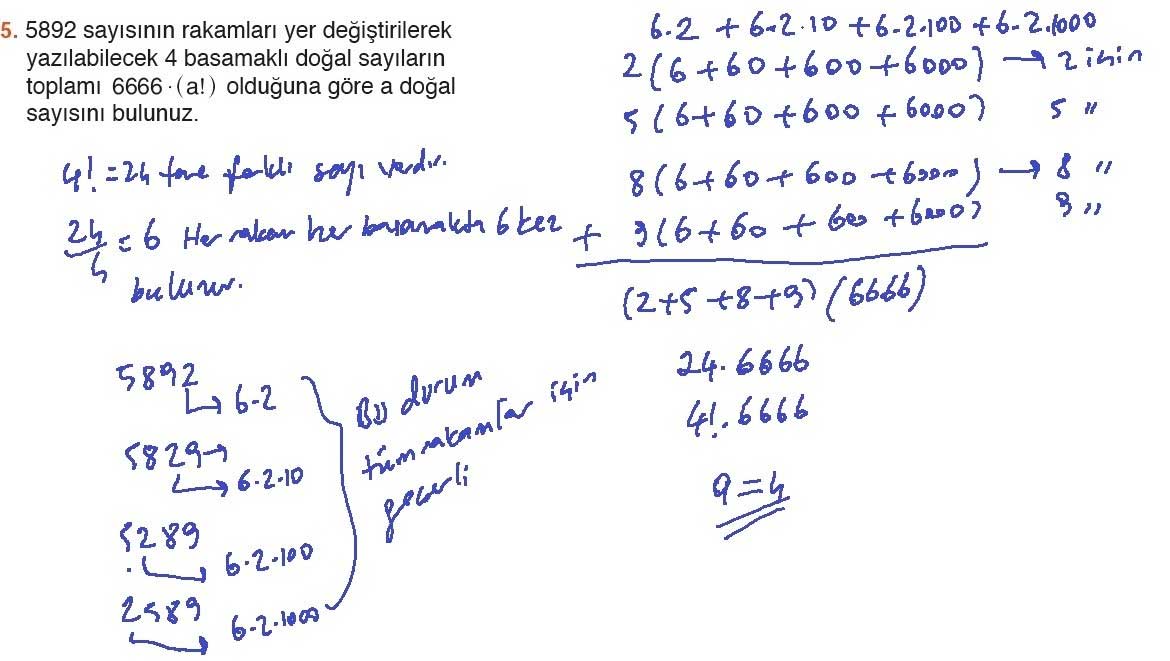 5. 5892 sayısının rakamları yer değiştirilerek
yazılabilecek 4 basamaklı doğal sayıların
toplamı 6666·(a!) olduğuna göre a doğal
sayısını bulunuz.
4! = 24 tane farklı sayı vardır.
24/4 = 6 Her rakam her basamakta 6 kez
bulunur.
5892
→ 6·2
5829→
→ 6·2·10
5289
→ 6·2·100
2589
→ 6·2·1000
Bu durum
tüm rakamlar için
geçerli
6·2 + 6·2·10 + 6·2·100 + 6·2·1000
2(6+60+600+6000) → 2 için
5(6+60+600+6000) 5 "
8(6+60+600+6000) → 8 "
+ 9(6+60+600+6000) 9 "
(2+5+8+9)(6666)
24·6666
4!·6666
a=4